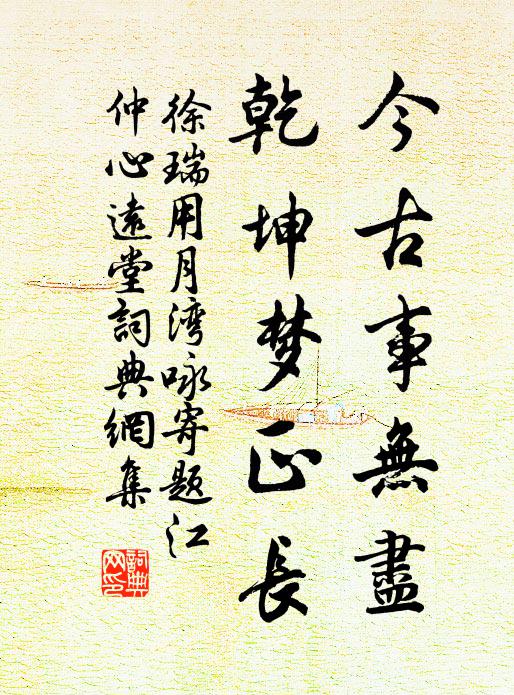 今古事無盡
乾坤梦正長
徐瑞用月湾咏寄題江
仲心遠堂詞典網集
詞典
网印